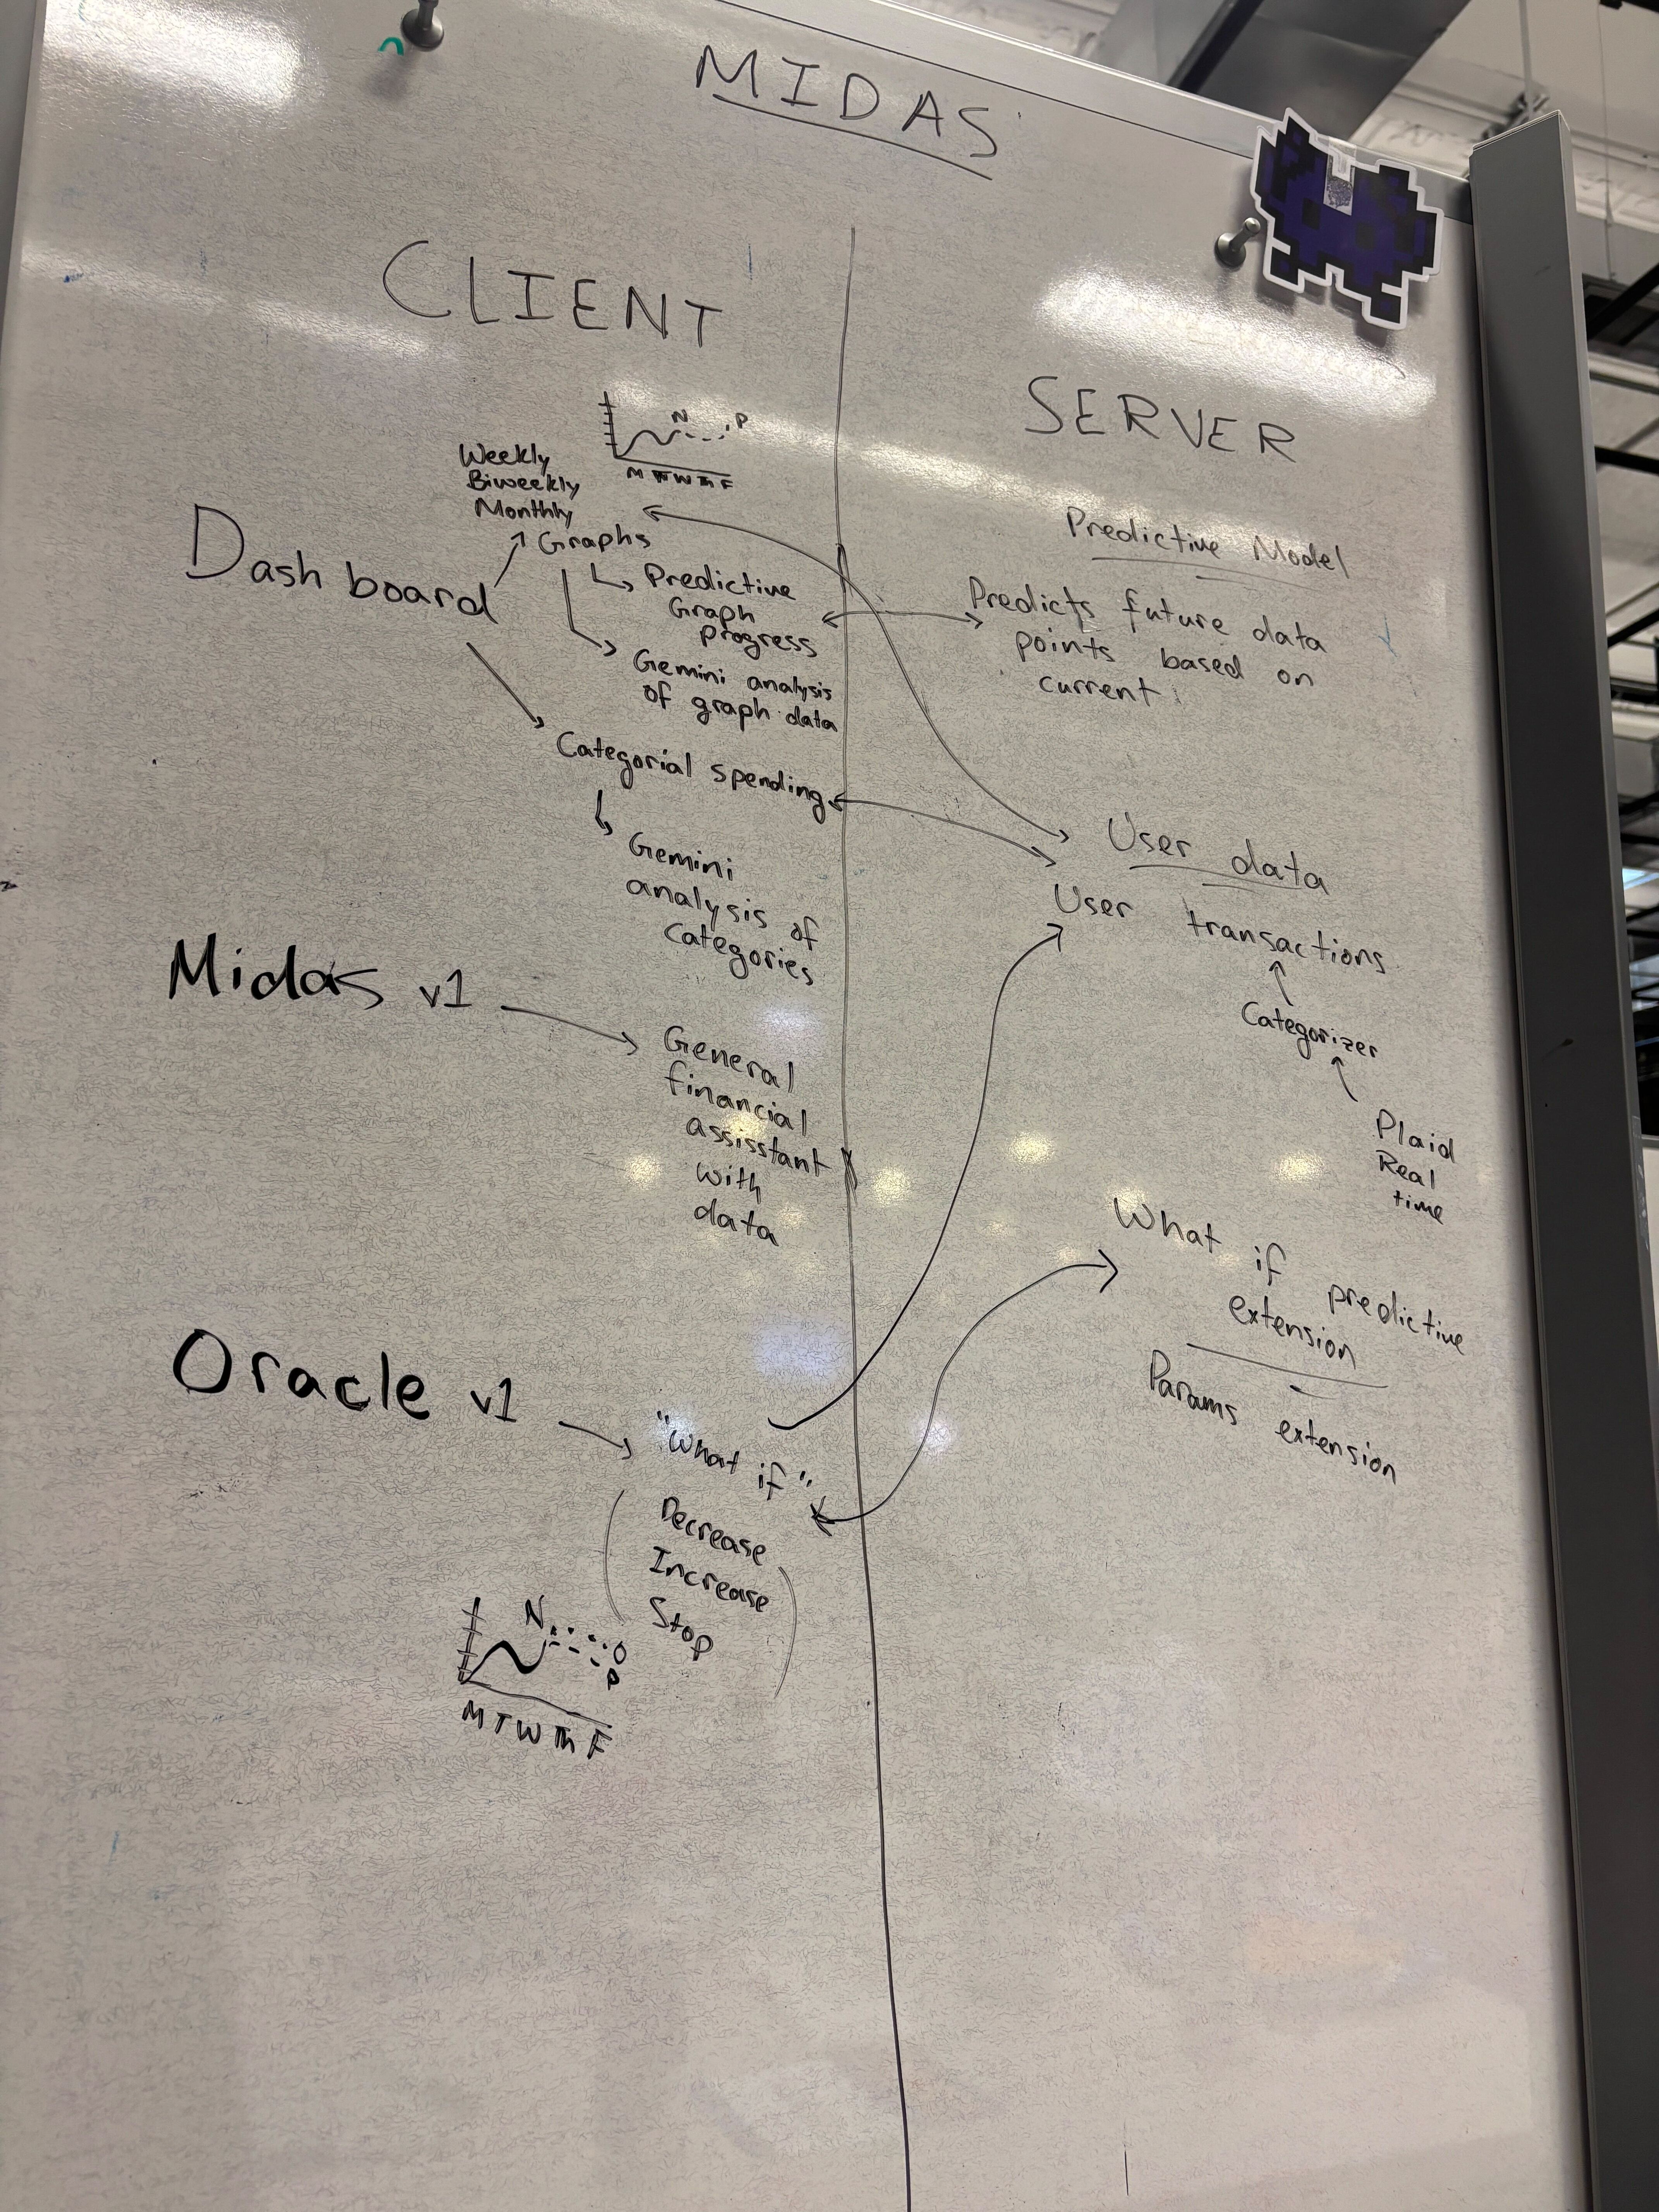 MIDAS
CLIENT
N P
M T W Th F
Weekly
Biweekly
Monthly
Graphs
Dashboard
Predictive
Graph
progress
Gemini analysis
of graph data
Categorial spending
Gemini
analysis of
Categories
Midas v1
General
financial
assisstant
with
data
Oracle v1
"What if"
Decrease
Increase
Stop
N O
P
M T W Th F
SERVER
Predictive Model
Predicts future data
points based on
current
User data
User transactions
Categorizer
Plaid
Real
time
What if predictive
extension
Params extension